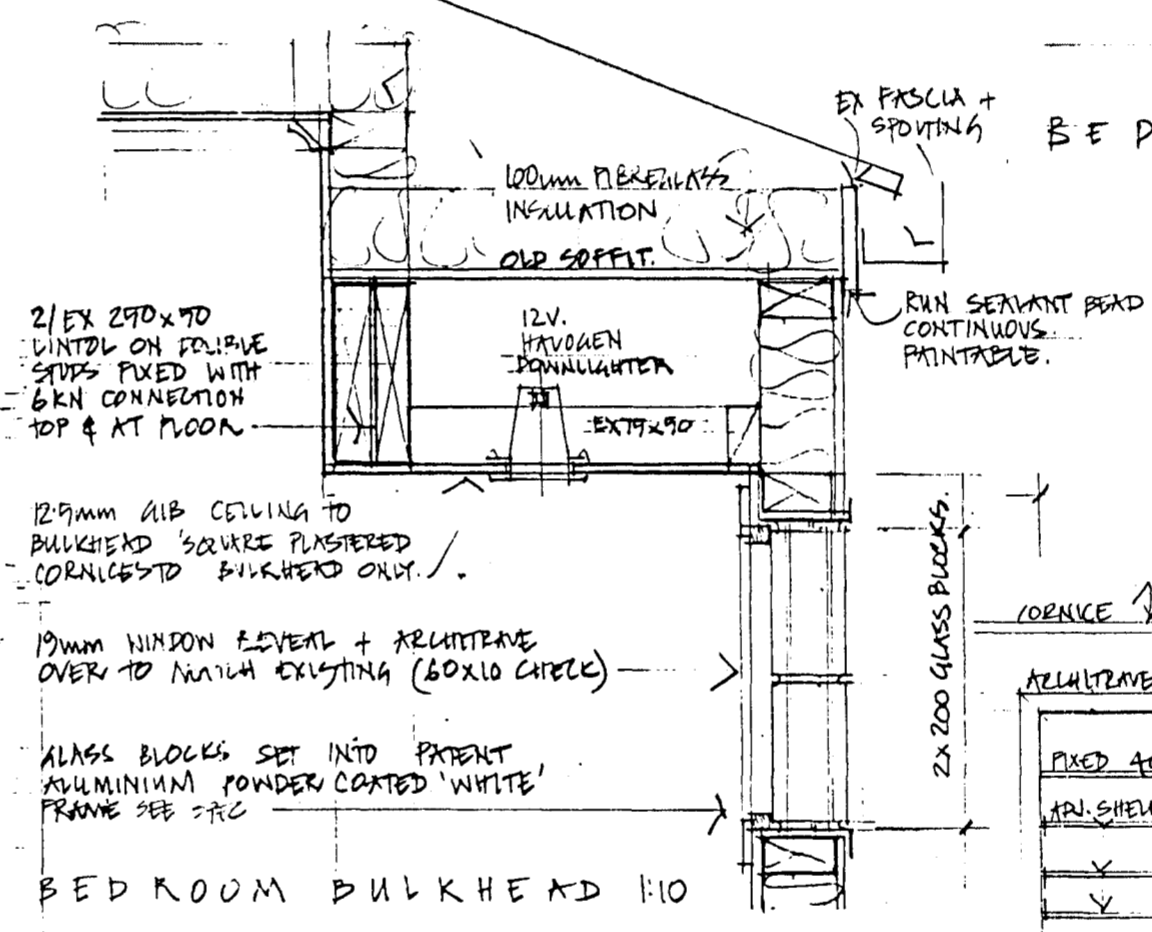 EX FASCIA +
SPOUTING
BED
100mm FIBREGLASS
INSULATION
OLD SOFFIT.
2/EX 250x50
LINTOL ON DOUBLE
STUDS FIXED WITH
6KN CONNECTION
TOP & AT FLOOR
12V.
HALOGEN
DOWNLIGHTER
EX75x50
RUN SEALANT BEAD
CONTINUOUS.
PAINTABLE.
12.5mm GIB CEILING TO
BULKHEAD 'SQUARE PLASTERED
CORNICES TO BULKHEAD ONLY.
19mm WINDOW REVEAL + ARCHITRAVE
OVER TO MATCH EXISTING (60x10 CHECK)
GLASS BLOCKS SET INTO PATENT
ALUMINIUM POWDER COATED 'WHITE'
FRAME SEE SPEC
2x200 GLASS BLOCKS.
CORNICE
ARCHITRAVE
FIXED
ADJ. SHEL
BEDROOM BULKHEAD 1:10